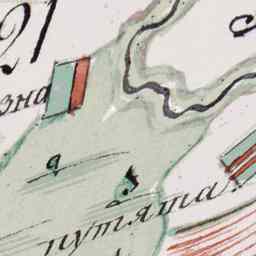 21
зна
а
путята